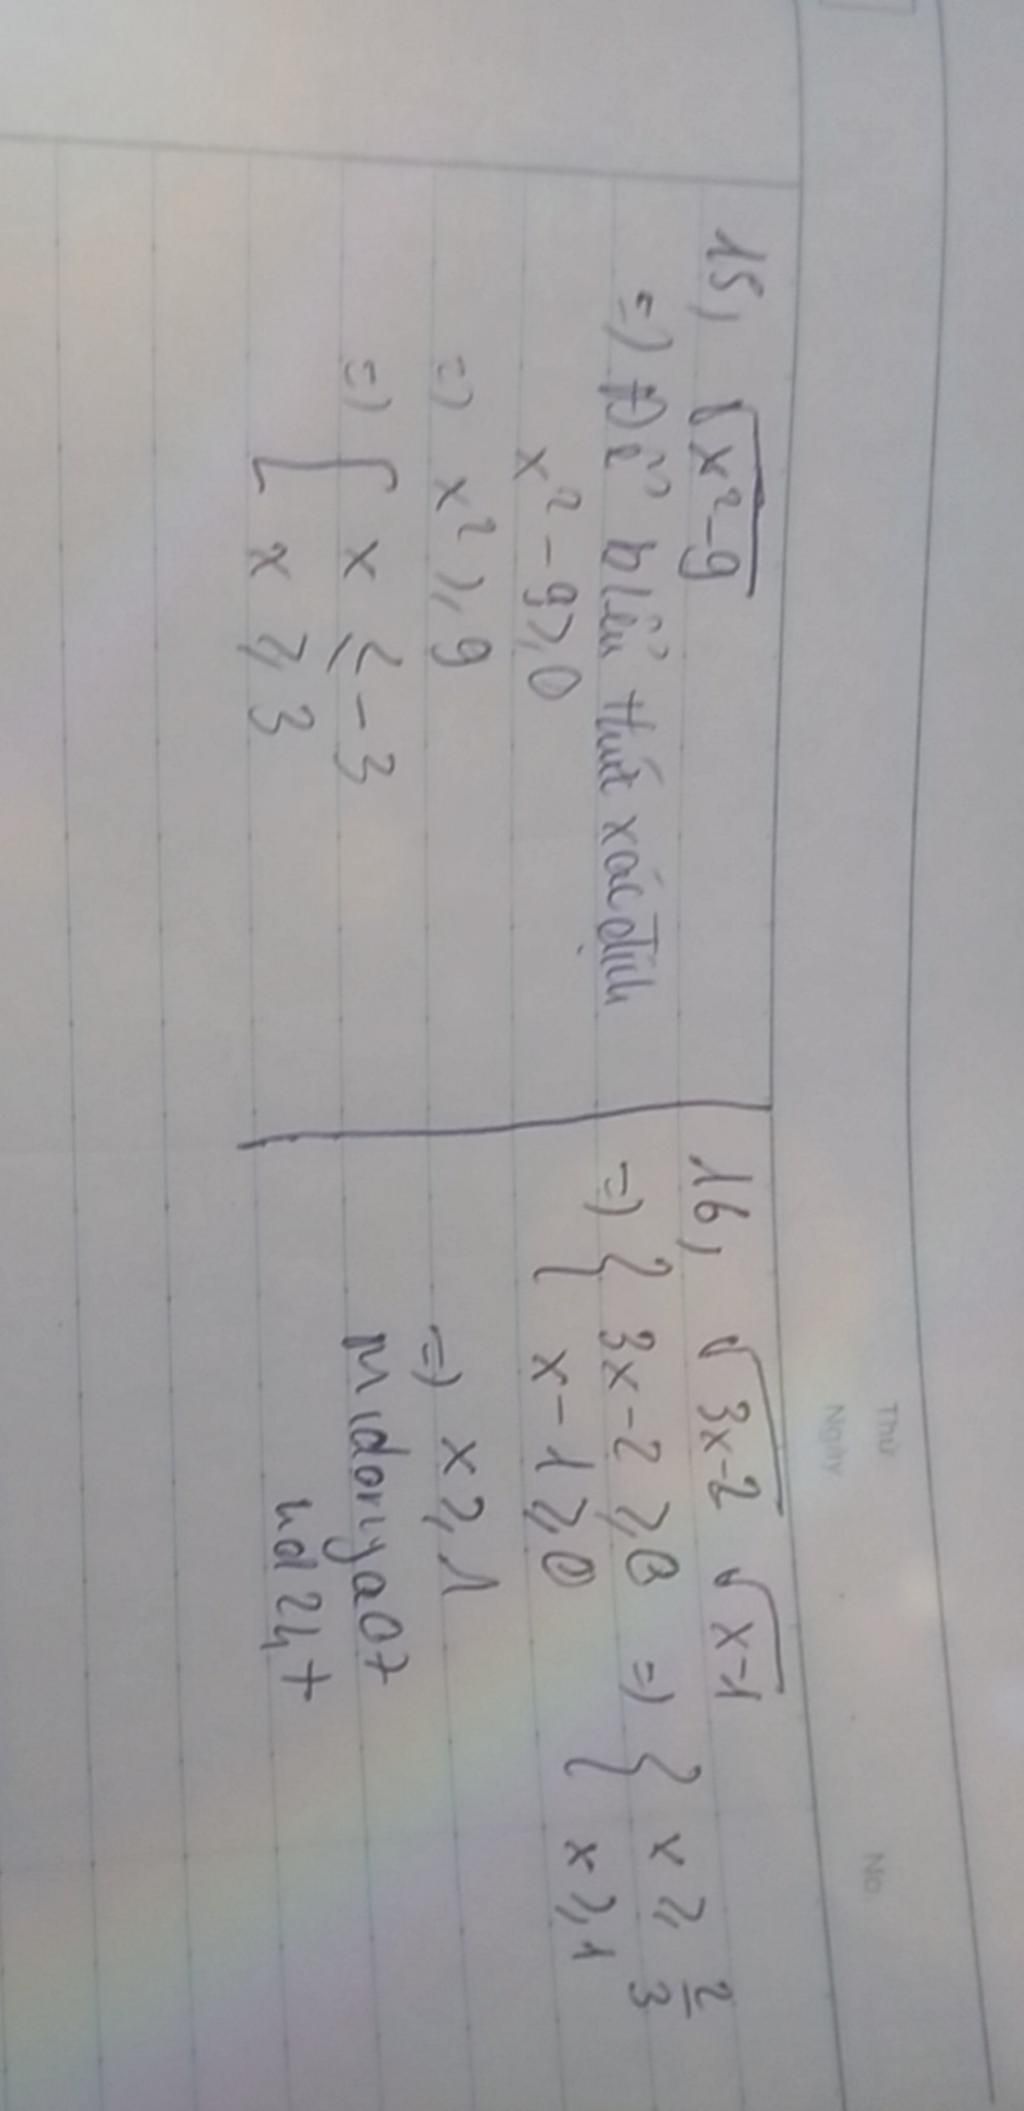 Thứ
Ngày
No
15, √x²-9
=) Để biểu thức xác định
x² - 9 ≥ 0
=) x² ≥ 9
=) [ x ≤ -3
x ≥ 3
16, √3x-2 √x-1
=) { 3x-2 ≥ 0 =) { x ≥ 2/3
x-1 ≥ 0 x ≥ 1
=) x ≥ 1
Midoriya07
hd24+